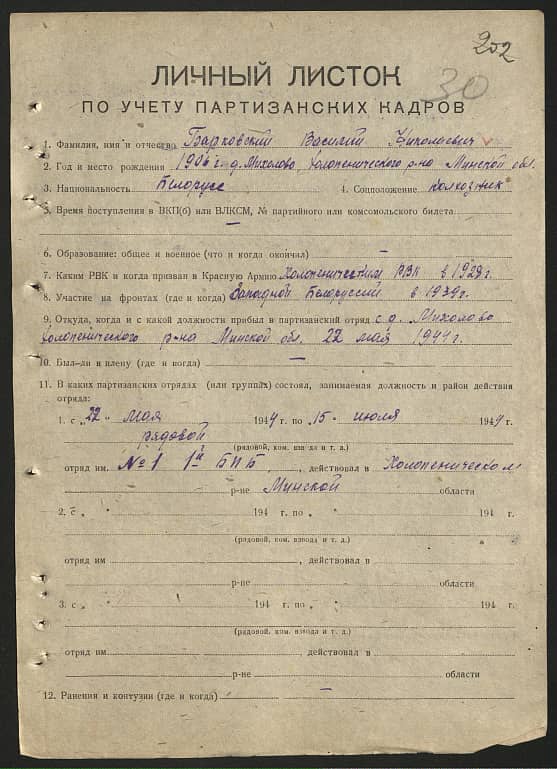 252
30
ЛИЧНЫЙ ЛИСТОК
ПО УЧЕТУ ПАРТИЗАНСКИХ КАДРОВ
1. Фамилия, имя и отчество Барковский Василий Николаевич
2. Год и место рождения 1906 г. д. Михолово, Холопенического р-на Минской обл.
3. Национальность Белорусс 4. Соцположение Колхозник
5. Время поступления в ВКП(б) или ВЛКСМ, № партийного или комсомольского билета
—
6. Образование: общее и военное (что и когда окончил) —
7. Каким РВК и когда призван в Красную Армию Холопеническим РВК в 1928 г.
8. Участие на фронтах (где и когда) Западной Белоруссий в 1939 г.
9. Откуда, когда и с какой должности прибыл в партизанский отряд с д. Михолово
Холопенического р-на Минской обл. 22 мая 1944 г.
10. Был-ли в плену (где и когда) —
11. В каких партизанских отрядах (или группах) состоял, занимаемая должность и район действия
отряда:
1. с „22" мая 1944 г. по 15 июля 1944 г.
рядовой
(рядовой, ком. взвода и т. д.)
отряд им. №1 1й БПБ, действовал в Холопеническом
р-не Минской области
2. с „ " 194 г. по „ " 194 г.
(рядовой, ком. взвода и т. д.)
отряд им , действовал в
р-не области
3. с „ " 194 г. по „ " 194 г.
(рядовой, ком. взвода и т. д.)
отряд им , действовал в
р-не области
12. Ранения и контузии (где и когда) —